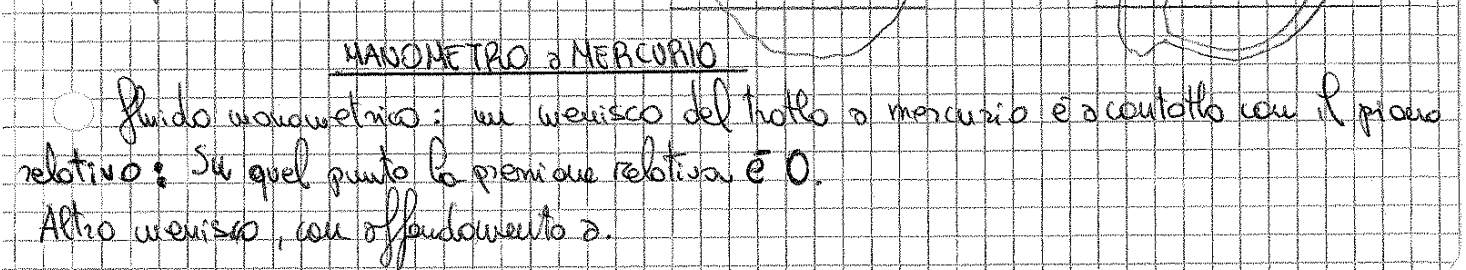 MANOMETRO a MERCURIO
fluido manometrico: un menisco del tratto a mercurio è a contatto con il piano
relativo: Su quel punto la pressione relativa è 0.
Altro menisco, con affondamento a.